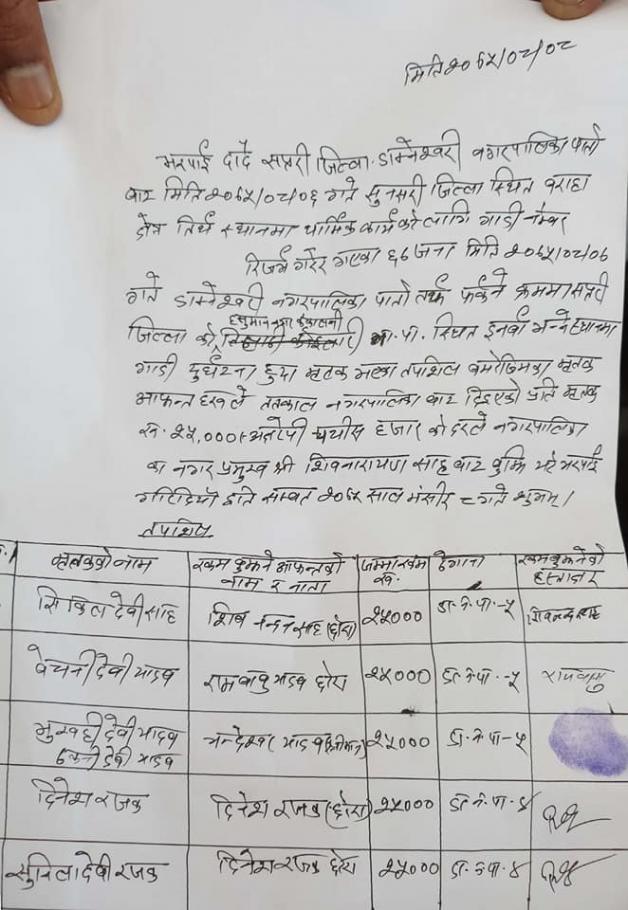 मिति २०७५/०८/०८
भरपाई दादै सप्तरी जिल्ला डाक्नेश्वरी नगरपालिका पातो
बाट मिति २०७५/०८/०६ गते सुनसरी जिल्ला स्थित वराहा
क्षेत्र तिर्थ स्थानमा धार्मिक कार्यको लागि गाडी नम्बर
रिजर्भ गरेर गएका ६६ जना मिति २०७५/०८/०७
गते डाक्नेश्वरी नगरपालिका पातो तर्फ फर्कने क्रममा सप्तरी
हनुमाननगर कंकालनी
जिल्ला को न.पा. स्थित इनर्वा भन्ने स्थानमा
गाडी दुर्घटना हुदा मृतक भएका तपशिल बमोजिमका मृतक
आफन्त हरुले तत्काल नगरपालिका बाट दिइएको प्रति मृतक
रु. २५,०००।- अक्षरेपी पचीस हजार को दरले नगरपालिका
का नगर प्रमुख श्री शिवनारायण साह बाट बुझि यो भरपाई
गरिदियौ इति सम्वत २०७५ साल मंसीर ८ गते शुभम्।
तपशिल
मृतकको नाम रकम बुझ्ने आफन्तको नाम र नाता जम्मा रकम रु. ठेगाना रकम बुझ्नेको हस्ताक्षर
देवी साह शिव नन्दन साह (छोरा) २५००० डा.न.पा.-५
वेचनी देवी यादव राम बाबु यादव छोरा २५००० डा.न.पा.-५ रामबाबु
देवी यादव
देवी यादव चन्देश्वर यादव २५००० डा.न.पा-५
दिनेश रजक दिनेश रजक (छोरा) २५००० डा.न.पा.-४
सुनिला देवी रजक दिनेश रजक छोरा २५००० डा.न.पा.४